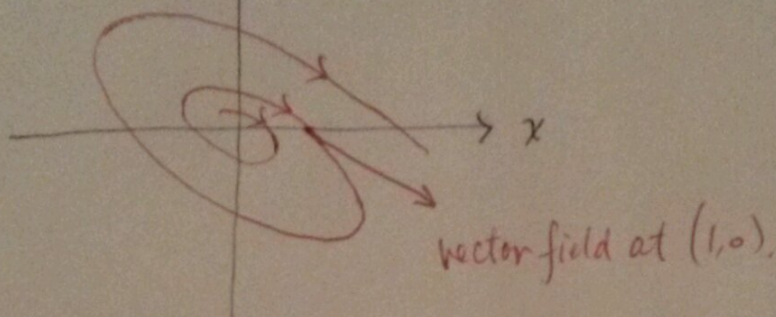 x
vector field at (1,0).